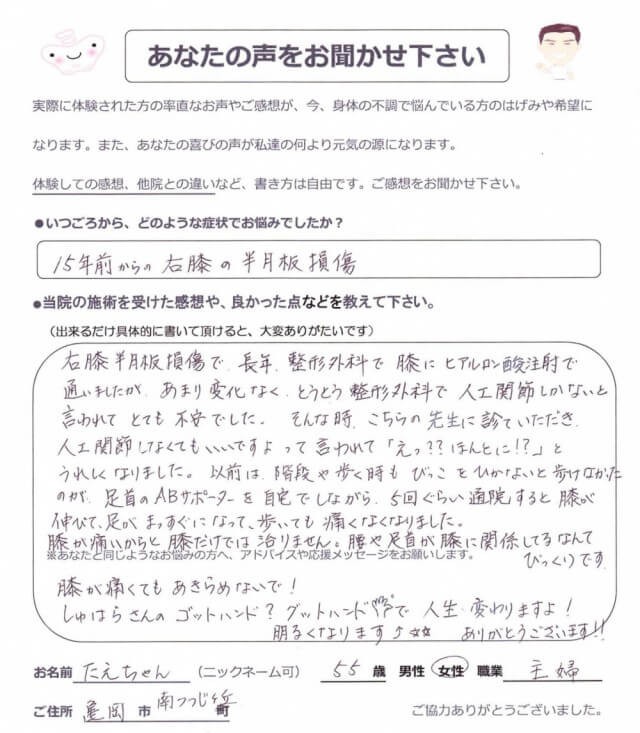 あなたの声をお聞かせ下さい
実際に体験された方の率直なお声やご感想が、今、身体の不調で悩んでいる方のはげみや希望に
なります。また、あなたの喜びの声が私達の何より元気の源になります。
体験しての感想、他院との違いなど、書き方は自由です。ご感想をお聞かせ下さい。
●いつごろから、どのような症状でお悩みでしたか？
15年前からの右膝の半月板損傷
●当院の施術を受けた感想や、良かった点などを教えて下さい。
（出来るだけ具体的に書いて頂けると、大変ありがたいです）
右膝半月板損傷で、長年、整形外科で膝にヒアルロン酸注射で
通いましたが、あまり変化なく、とうとう整形外科で人工関節しかないと
言われてとても不安でした。そんな時、こちらの先生に診ていただき、
人工関節しなくてもいいですよって言われて「えっ??ほんとに!?」と
うれしくなりました。以前は、階段や歩く時もびっこをひかないと歩けなかった
のが、足首のABサポーターを自宅でしながら、5回ぐらい通院すると膝が
伸びて、足がまっすぐになって、歩いても痛くなくなりました。
膝が痛いからと膝だけでは治りません。腰や足首が膝に関係してるなんて
びっくりです。
※あなたと同じようなお悩みの方へ、アドバイスや応援メッセージをお願いします。
膝が痛くてもあきらめないで！
しゅはらさんのゴットハンド？グットハンドで人生変わりますよ！
明るくなります♪☆☆ ありがとうございます!!
お名前 たえちゃん （ニックネーム可） 55 歳 男性 女性 職業 主婦
ご住所 亀岡 市 南つつじヶ丘 町 ご協力ありがとうございました。